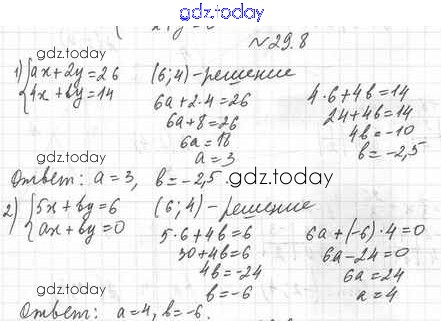 gdz.today
gdz.today
№29.8
1) {ax+2y=26 (6;4)-решение
{4x+by=14
6a+2·4=26 4·6+4b=14
6a+8=26 24+4b=14
6a=18 4b=-10
a=3 b=-2,5
gdz.today
Ответ: a=3, b=-2,5
gdz.today
2) {5x+by=6 (6;4)-решение
{ax+by=0
5·6+4b=6 6a+(-6)·4=0
30+4b=6 6a-24=0
4b=-24 6a=24
b=-6 a=4
gdz.today
gdz.today
Ответ: a=4, b=-6.